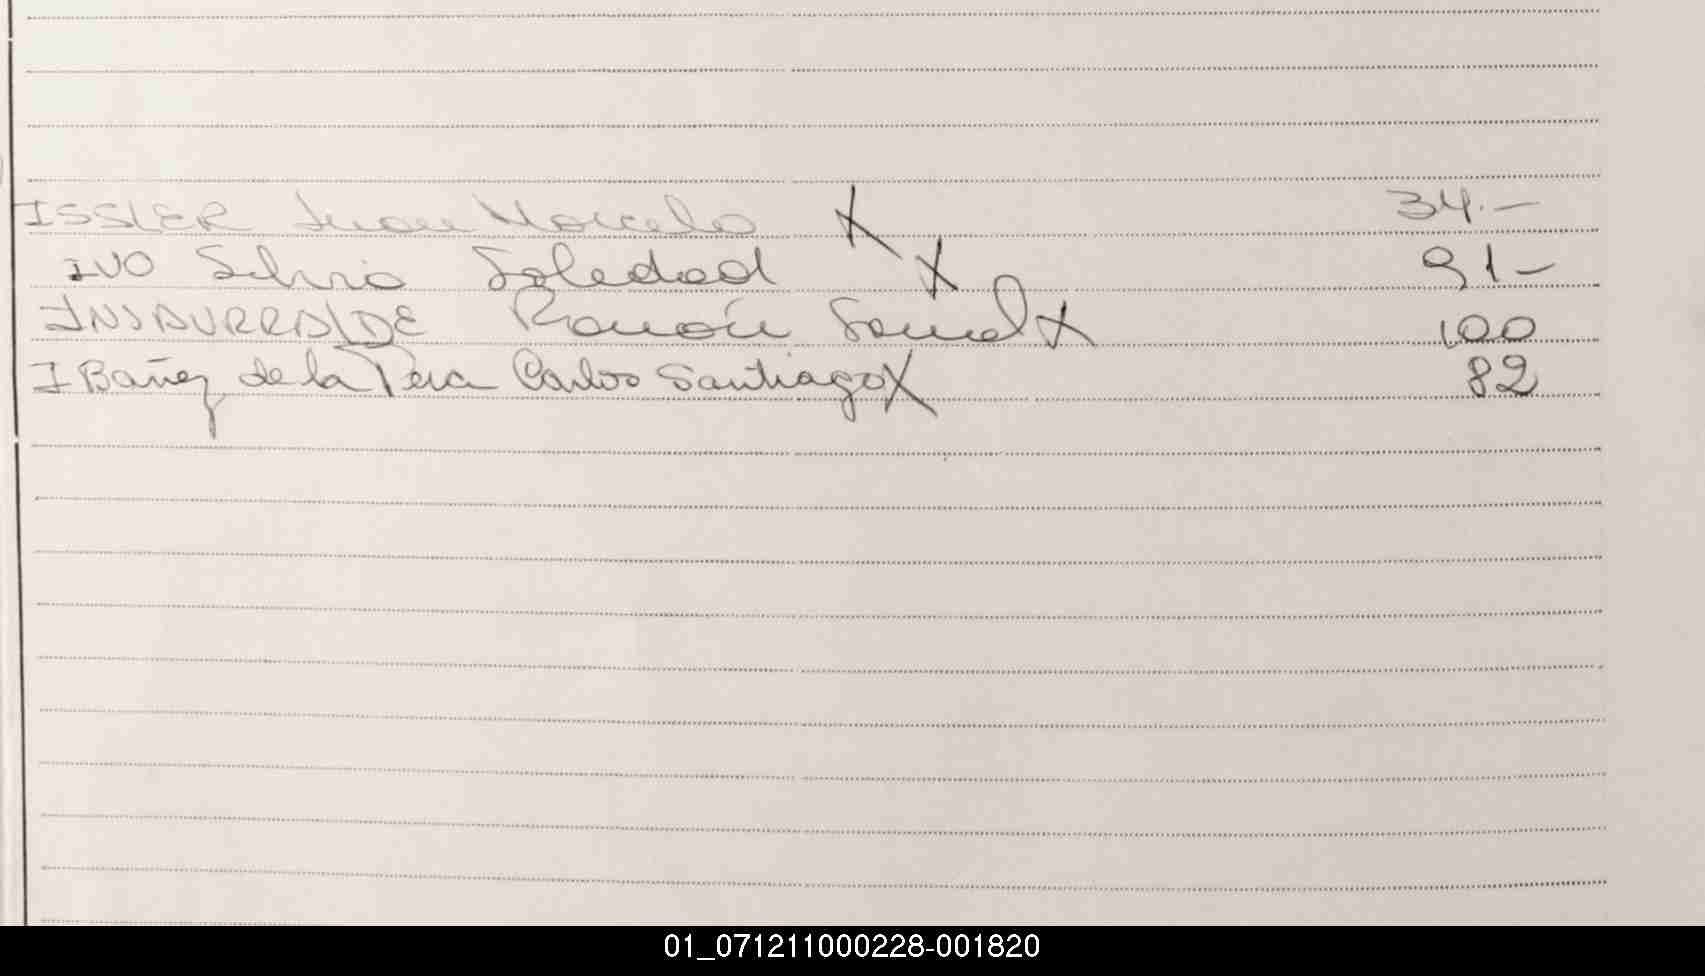 ISSLER Juan Marcelo X 34.-
IVO Silvia Soledad X 91-
INSAURRALDE Ramón Samuel X 100
IBañez de la Pera Carlos Santiago X 82
01_071211000228-001820